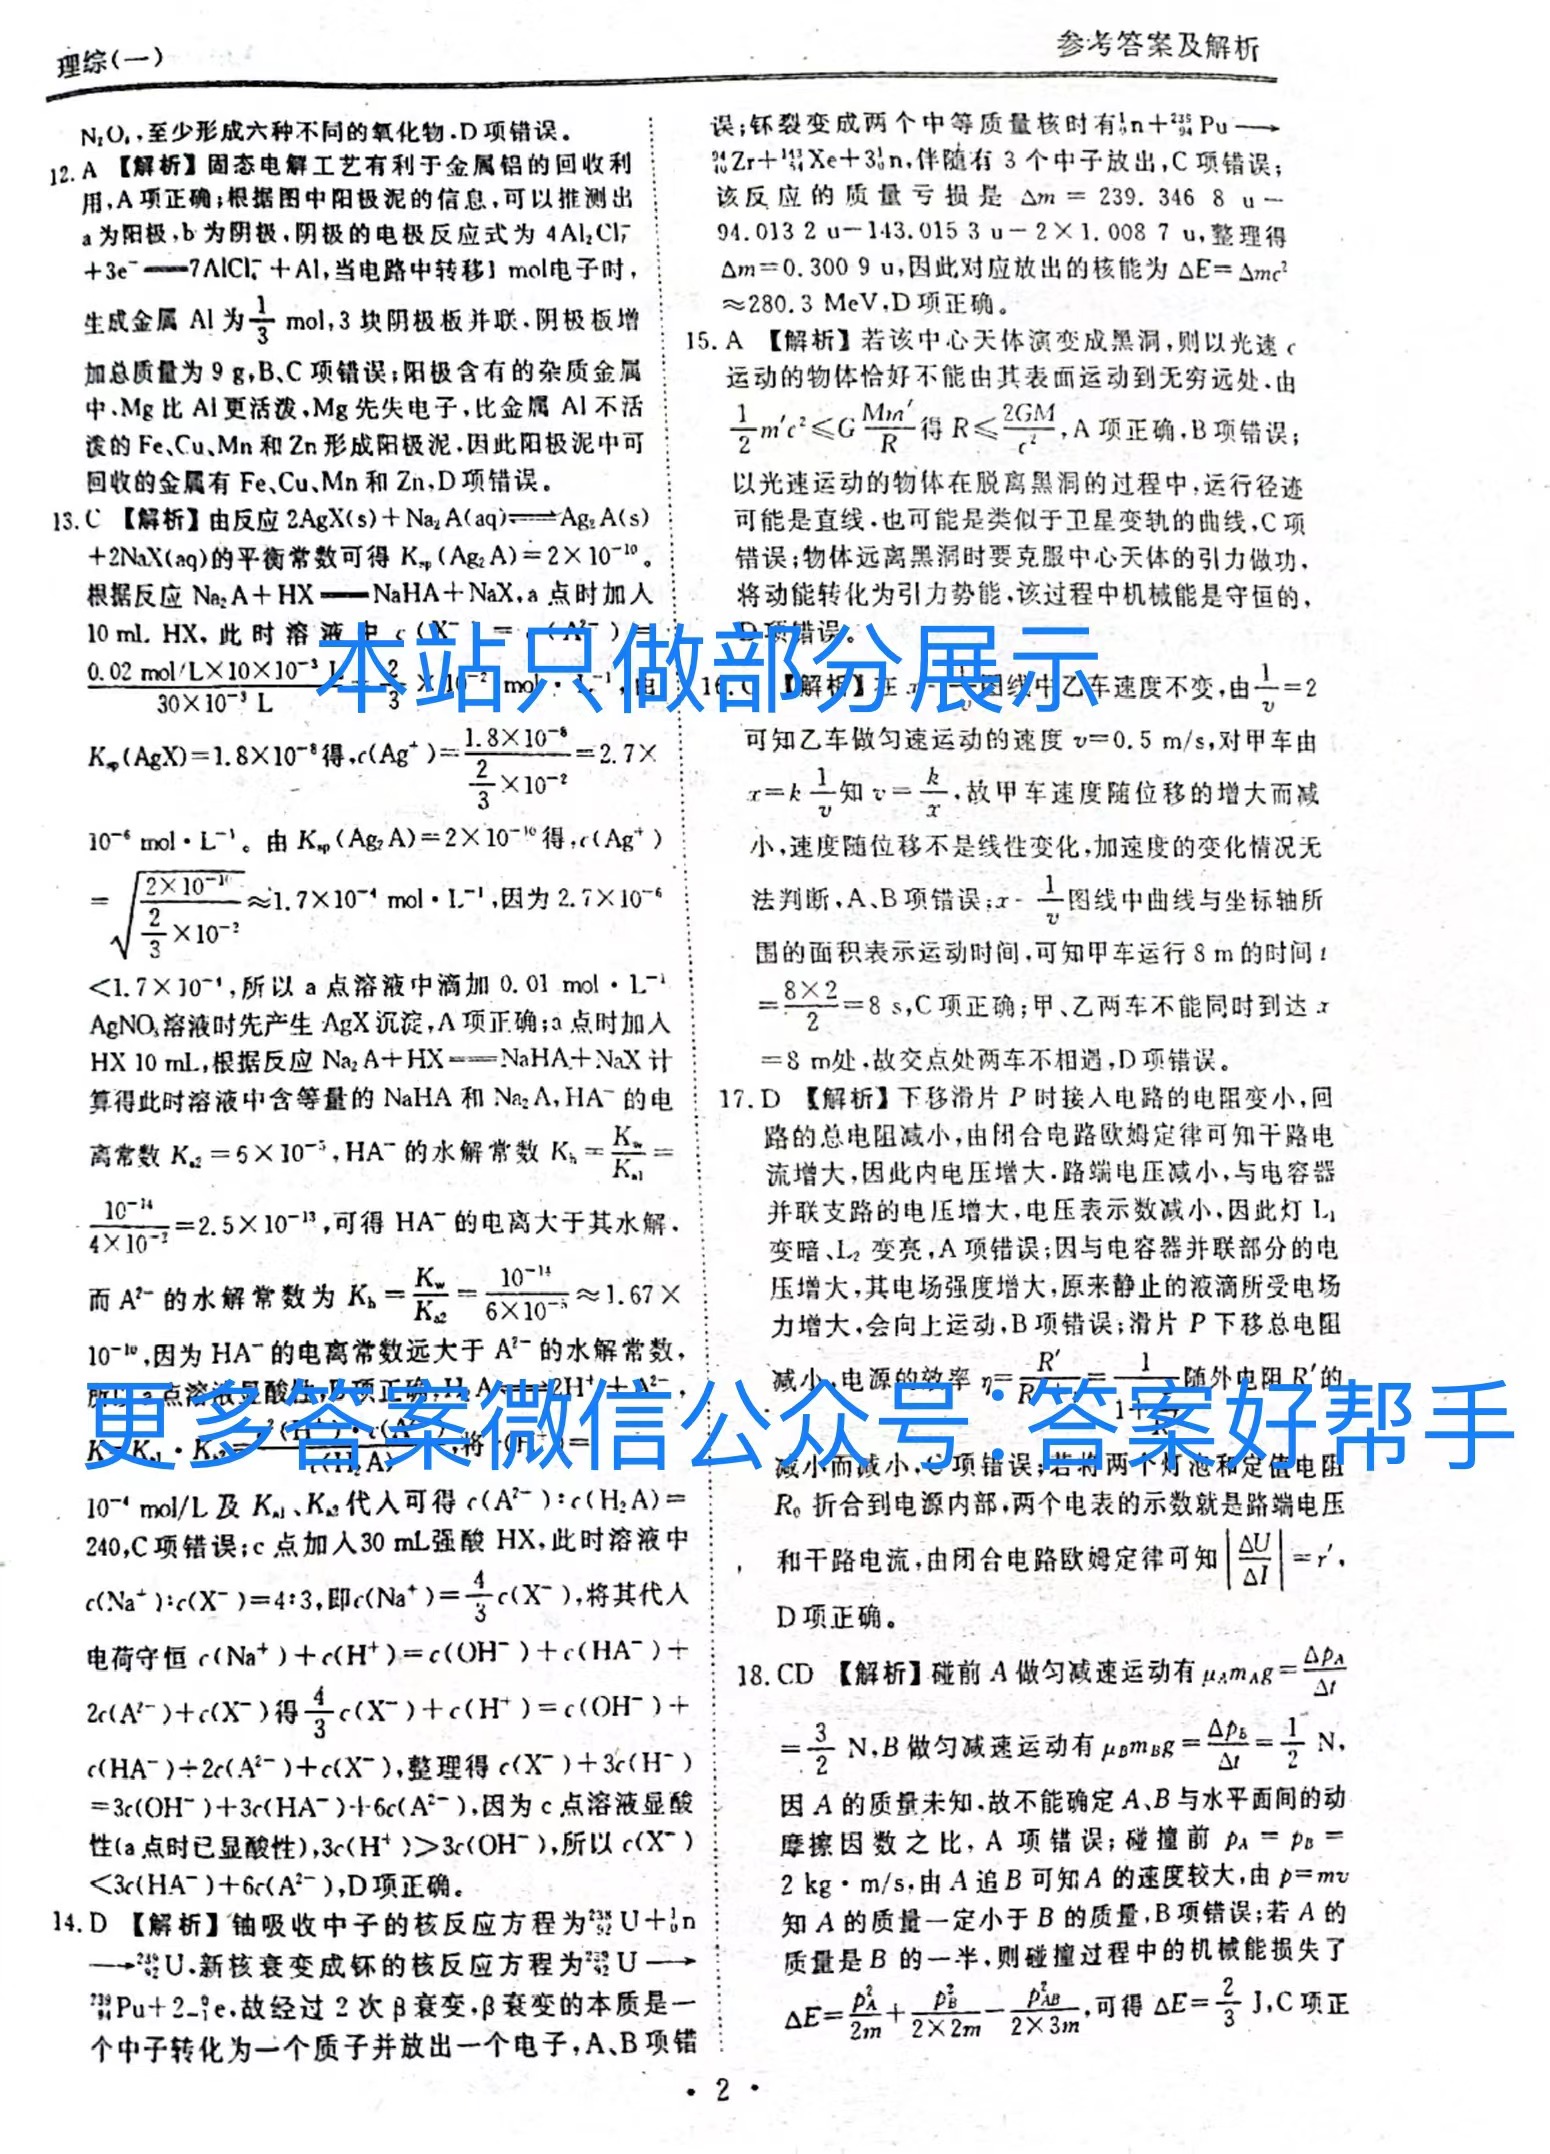 理综(一)
参考答案及解析
N₂O₄,至少形成六种不同的氧化物.D项错误。
12. A 【解析】固态电解工艺有利于金属铝的回收利
用,A项正确;根据图中阳极泥的信息,可以推测出
a为阳极,b为阴极,阴极的电极反应式为 4Al₂Cl₇⁻
+3e⁻══7AlCl₄⁻+Al,当电路中转移1 mol电子时,
生成金属 Al 为 1/3 mol,3 块阴极板并联,阴极板增
加总质量为 9 g,B、C 项错误;阳极含有的杂质金属
中,Mg 比 Al 更活泼,Mg 先失电子,比金属 Al 不活
泼的 Fe、Cu、Mn 和 Zn 形成阳极泥,因此阳极泥中可
回收的金属有 Fe、Cu、Mn 和 Zn,D项错误。
13. C 【解析】由反应 2AgX(s)+Na₂A(aq)⇌Ag₂A(s)
+2NaX(aq)的平衡常数可得 Kₛₚ(Ag₂A)=2×10⁻¹⁰。
根据反应 Na₂A+HX══NaHA+NaX,a 点时加入
10 mL HX,此时溶液中 c(X⁻)=c(A²⁻)=
0.02 mol/L×10×10⁻³ L / 30×10⁻³ L = 2/3 ×10⁻² mol·L⁻¹,由
Kₛₚ(AgX)=1.8×10⁻⁸得,c(Ag⁺)= 1.8×10⁻⁸ / (2/3 ×10⁻²) =2.7×
10⁻⁶ mol·L⁻¹。由 Kₛₚ(Ag₂A)=2×10⁻¹⁰得,c(Ag⁺)
= √(2×10⁻¹⁰ / (2/3 ×10⁻²)) ≈1.7×10⁻⁴ mol·L⁻¹,因为 2.7×10⁻⁶
<1.7×10⁻⁴,所以 a 点溶液中滴加 0.01 mol·L⁻¹
AgNO₃溶液时先产生 AgX 沉淀,A项正确;a 点时加入
HX 10 mL,根据反应 Na₂A+HX══NaHA+NaX 计
算得此时溶液中含等量的 NaHA 和 Na₂A,HA⁻ 的电
离常数 Kₐ₂=6×10⁻⁵,HA⁻ 的水解常数 Kₕ= K_w/Kₐ₁ =
10⁻¹⁴ / 4×10⁻² =2.5×10⁻¹³,可得 HA⁻ 的电离大于其水解,
而 A²⁻ 的水解常数为 Kₕ= K_w/Kₐ₂ = 10⁻¹⁴ / 6×10⁻⁵ ≈1.67×
10⁻¹⁰,因为 HA⁻ 的电离常数远大于 A²⁻ 的水解常数,
所以 a 点溶液显酸性,B项正确;H₂A⇌2H⁺+A²⁻,
K=Kₐ₁·Kₐ₂= c²(H⁺)·c(A²⁻) / c(H₂A) ,将 c(H⁺)=
10⁻⁴ mol/L 及 Kₐ₁、Kₐ₂代入可得 c(A²⁻):c(H₂A)=
240,C项错误;c 点加入30 mL强酸 HX,此时溶液中
c(Na⁺):c(X⁻)=4:3,即c(Na⁺)= 4/3 c(X⁻),将其代入
电荷守恒 c(Na⁺)+c(H⁺)=c(OH⁻)+c(HA⁻)+
2c(A²⁻)+c(X⁻)得 4/3 c(X⁻)+c(H⁺)=c(OH⁻)+
c(HA⁻)+2c(A²⁻)+c(X⁻),整理得 c(X⁻)+3c(H⁺)
=3c(OH⁻)+3c(HA⁻)+6c(A²⁻),因为 c 点溶液显酸
性(a点时已显酸性),3c(H⁺)>3c(OH⁻),所以 c(X⁻)
<3c(HA⁻)+6c(A²⁻),D项正确。
14. D 【解析】铀吸收中子的核反应方程为²³⁸₉₂U+¹₀n
→²³⁹₉₂U,新核衰变成钚的核反应方程为²³⁹₉₂U→
²³⁹₉₄Pu+2⁰₋₁e,故经过 2 次 β 衰变,β 衰变的本质是一
个中子转化为一个质子并放出一个电子,A、B 项错
误;钚裂变成两个中等质量核时有¹₀n+²³⁹₉₄Pu→
Zr+Xe+3¹₀n,伴随有 3 个中子放出,C 项错误;
该反应的质量亏损是 Δm=239.346 8 u-
94.013 2 u-143.015 3 u-2×1.008 7 u,整理得
Δm=0.300 9 u,因此对应放出的核能为 ΔE=Δmc²
≈280.3 MeV,D项正确。
15. A 【解析】若该中心天体演变成黑洞,则以光速 c
运动的物体恰好不能由其表面运动到无穷远处,由
1/2 m′c²≤G Mm′/R 得 R≤ 2GM/c² ,A 项正确,B项错误;
以光速运动的物体在脱离黑洞的过程中,运行径迹
可能是直线,也可能是类似于卫星变轨的曲线,C 项
错误;物体远离黑洞时要克服中心天体的引力做功,
将动能转化为引力势能,该过程中机械能是守恒的,
D项错误。
16. C 【解析】在 x- 1/v 图线中乙车速度不变,由 1/v =2
可知乙车做匀速运动的速度 v=0.5 m/s,对甲车由
x=k 1/v 知 v= k/x ,故甲车速度随位移的增大而减
小,速度随位移不是线性变化,加速度的变化情况无
法判断,A、B 项错误;x- 1/v 图线中曲线与坐标轴所
围的面积表示运动时间,可知甲车运行 8 m 的时间 t
= 8×2 / 2 =8 s,C项正确;甲、乙两车不能同时到达 x
=8 m处,故交点处两车不相遇,D项错误。
17. D 【解析】下移滑片 P 时接入电路的电阻变小,回
路的总电阻减小,由闭合电路欧姆定律可知干路电
流增大,因此内电压增大,路端电压减小,与电容器
并联支路的电压增大,电压表示数减小,因此灯 L₁
变暗、L₂ 变亮,A 项错误;因与电容器并联部分的电
压增大,其电场强度增大,原来静止的液滴所受电场
力增大,会向上运动,B项错误;滑片 P 下移总电阻
减小,电源的效率 η= R′ / = 1 / 随外电阻 R′的
减小而减小,C 项错误;若将两个灯泡和定值电阻
R₀ 折合到电源内部,两个电表的示数就是路端电压
和干路电流,由闭合电路欧姆定律可知 |ΔU/ΔI| =r′,
D项正确。
18. CD 【解析】碰前 A 做匀减速运动有 μ_A m_A g= Δp_A/Δt
= 3/2 N,B 做匀减速运动有 μ_B m_B g= Δp_B/Δt = 1/2 N,
因 A 的质量未知,故不能确定 A、B 与水平面间的动
摩擦因数之比,A 项错误;碰撞前 p_A=p_B=
2 kg·m/s,由 A 追 B 可知 A 的速度较大,由 p=mv
知 A 的质量一定小于 B 的质量,B项错误;若 A 的
质量是 B 的一半,则碰撞过程中的机械能损失了
ΔE= p_A²/2m + p_B²/2×2m - p_AB²/2×3m ,可得 ΔE= 2/3 J,C 项正
本站只做部分展示
更多答案微信公众号:答案好帮手
· 2 ·